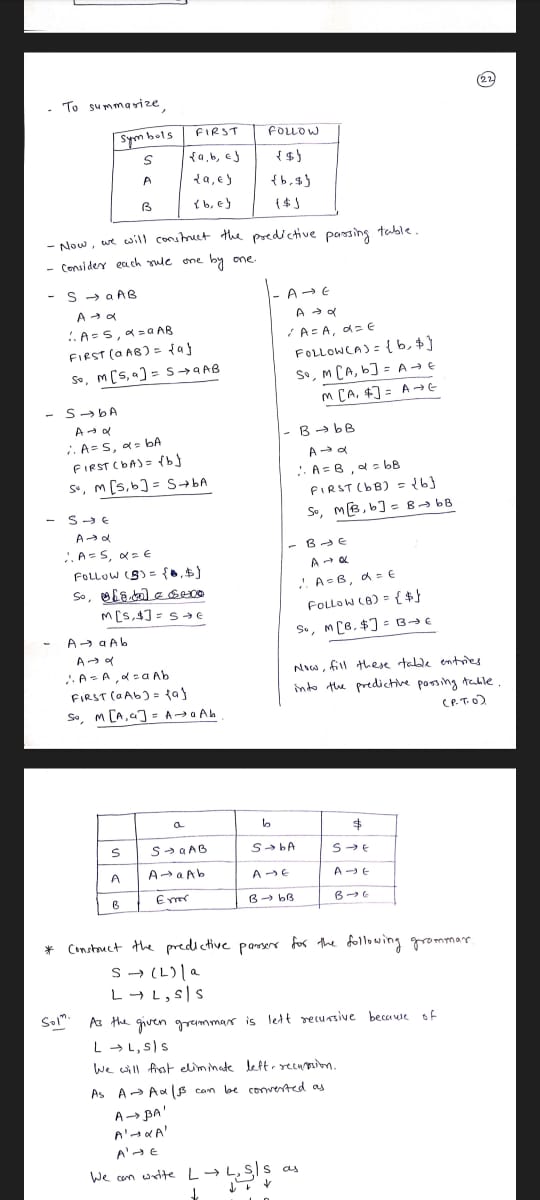 22
- To summarize,
Symbols FIRST FOLLOW
S {a,b,ϵ} {$}
A {a,ϵ} {b,$}
B {b,ϵ} {$}
- Now, we will construct the predictive parsing table.
- Consider each rule one by one.
- S → aAB
A → α
∴ A = S, α = aAB
FIRST (aAB) = {a}
So, M[S,a] = S→aAB
- S→bA
A→α
∴ A = S, α = bA
FIRST (bA) = {b}
So, M[S,b] = S→bA
- S→ϵ
A→α
∴ A = S, α = ϵ
FOLLOW (S) = { ,$}
So,
M[S,$] = S→ϵ
- A→ aAb
A→α
∴ A = A, α = aAb
FIRST (aAb) = {a}
So, M[A,a] = A→aAb
- A→ϵ
A→α
∴ A = A, α = ϵ
FOLLOW(A) = {b,$}
So, M[A,b] = A→ϵ
M[A,$] = A→ϵ
- B→bB
A→α
∴ A = B, α = bB
FIRST (bB) = {b}
So, M[B,b] = B→bB
- B→ϵ
A→α
∴ A = B, α = ϵ
FOLLOW (B) = {$}
So, M[B,$] = B→ϵ
Now, fill these table entries
into the predictive parsing table.
(P.T.O)
a b $
S S→aAB S→bA S→ϵ
A A→aAb A→ϵ A→ϵ
B Error B→bB B→ϵ
* Construct the predictive parser for the following grammar
S → (L)|a
L → L,S|S
Solⁿ: As the given grammar is left recursive because of
L → L,S|S
We will first eliminate left-recursion.
As A → Aα|β can be converted as
A→βA'
A'→αA'
A'→ϵ
We can write L → L,S|S as